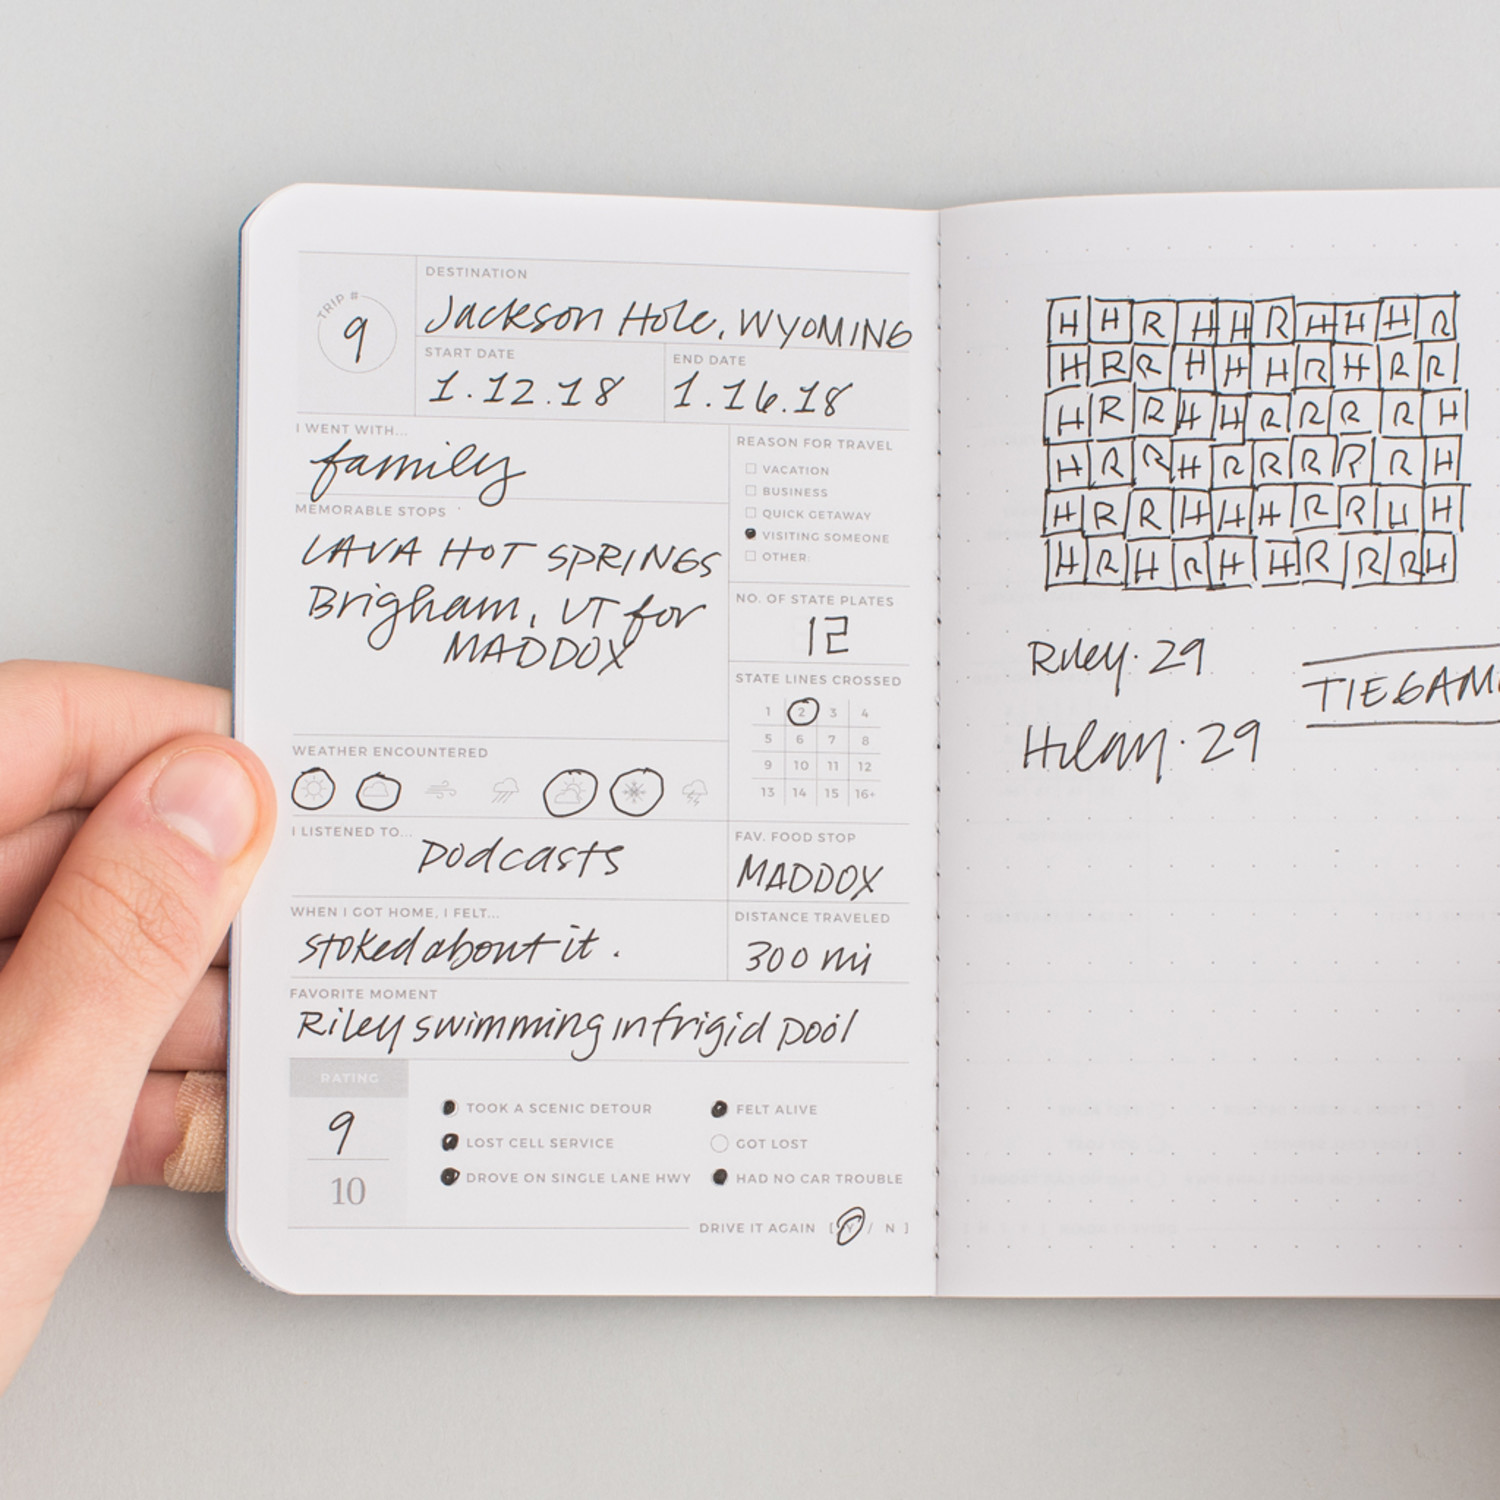 TRIP #
9
DESTINATION
Jackson Hole, WYOMING
START DATE
1.12.18
END DATE
1.16.18
I WENT WITH...
family
MEMORABLE STOPS
LAVA HOT SPRINGS
Brigham, UT for
MADDOX
REASON FOR TRAVEL
VACATION
BUSINESS
QUICK GETAWAY
VISITING SOMEONE
OTHER:
NO. OF STATE PLATES
12
STATE LINES CROSSED
1 2 3 4
5 6 7 8
9 10 11 12
13 14 15 16+
WEATHER ENCOUNTERED
I LISTENED TO...
podcasts
FAV. FOOD STOP
MADDOX
WHEN I GOT HOME, I FELT...
stoked about it.
DISTANCE TRAVELED
300 mi
FAVORITE MOMENT
Riley swimming in frigid pool
RATING
9
10
TOOK A SCENIC DETOUR
LOST CELL SERVICE
DROVE ON SINGLE LANE HWY
FELT ALIVE
GOT LOST
HAD NO CAR TROUBLE
DRIVE IT AGAIN [ Y / N ]
H H R H H R H H H R
H R R H H H R H R R
H R R H H R R R R H
H R R H R R R R R H
H R R H H H R R H H
H R H R H H R R R H
Riley. 29
Hilary. 29
TIEGAM